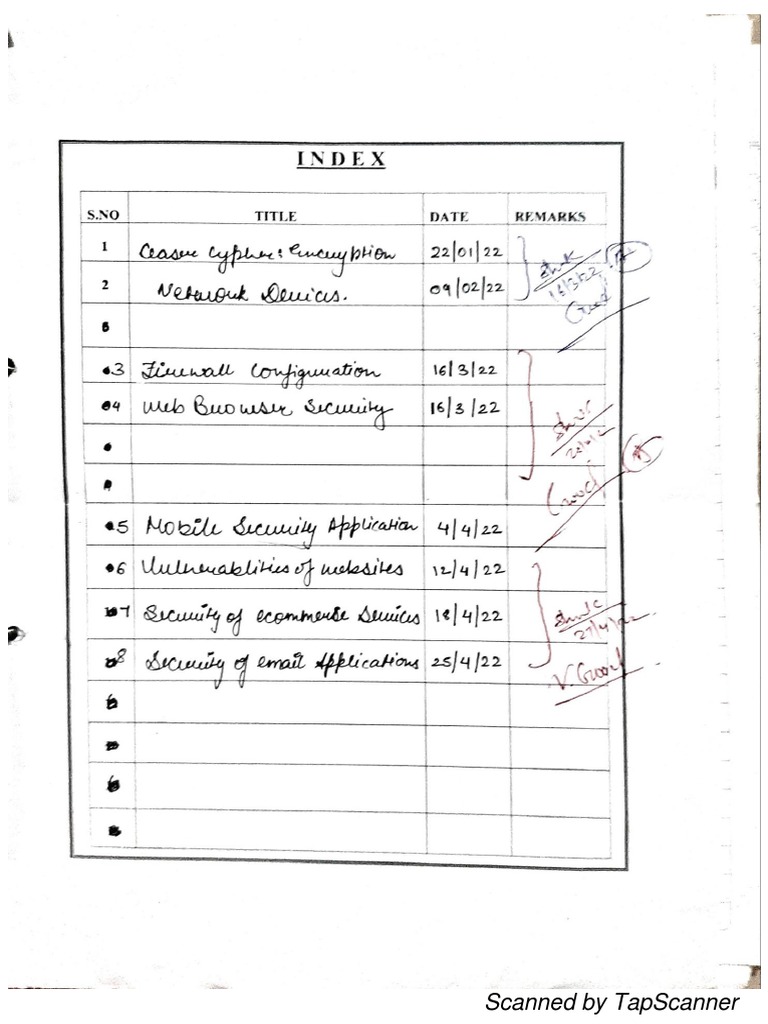 INDEX
S.NO TITLE DATE REMARKS
1 Ceaser Cypher: Encryption 22/01/22
2 Network Devices. 09/02/22
16/3/22
Good
3 Firewall Configuration 16/3/22
4 Web Browser Security 16/3/22
Good
5 Mobile Security Application 4/4/22
6 Vulnerabilities of websites 12/4/22
7 Security of ecommerce Services 18/4/22
27/4/22
8 Security of email Applications 25/4/22
V. Good
Scanned by TapScanner